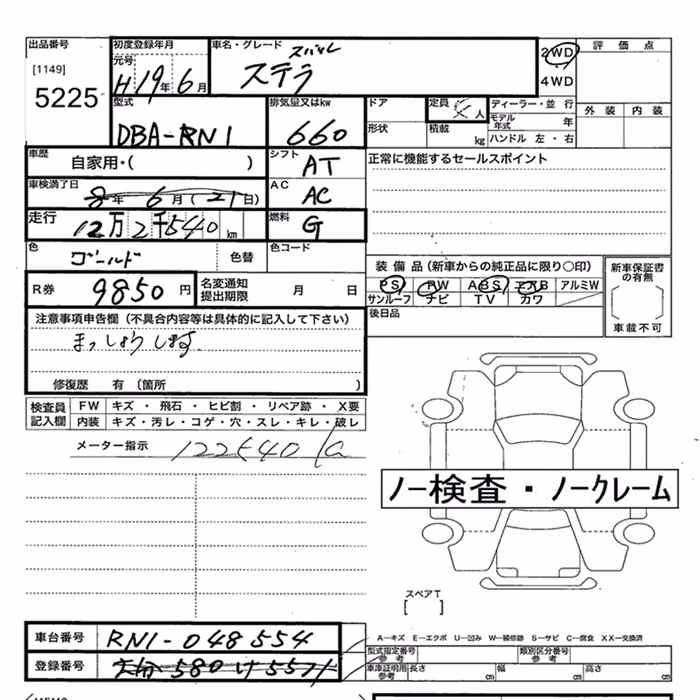 出品番号 初度登録年月 車名・グレード スバル 2WD 評価点
[1149] 元号 ステラ 4WD
5225 H19年6月 外装 内装
型式 排気量又はkw ドア 定員 人 ディーラー・並行
DBA-RN1 660 形状 積載 kg モデル年式 年
ハンドル 左・右
車歴 自家用・( ) シフト AT 正常に機能するセールスポイント
車検満了日 8年6月(21日) AC AC
走行 12万2千540km 燃料 G
色 ゴールド 色替 色コード
装備品(新車からの純正品に限り○印) 新車保証書の有無
R券 9850円 名変通知提出期限 月 日 PS PW ABS エアB アルミW
サンルーフ ナビ TV カワ
注意事項申告欄(不具合内容等は具体的に記入して下さい) 後日品 車載不可
まっしょうします
修復歴 有〔箇所 〕
検査員記入欄 FW キズ・飛石・ヒビ割・リペア跡・X要
内装 キズ・汚レ・コゲ・穴・スレ・キレ・破レ
メーター指示 122540
ノー検査・ノークレーム
スペアT
[ ]
車台番号 RN1-048554 A-キズ E-エクボ U-凹み W-補修跡 S-サビ C-腐食 XX-交換済
型式指定番号 参考 類別区分番号 参考
登録番号 580 車庫証明用 参考 長さ cm 幅 cm 高さ cm